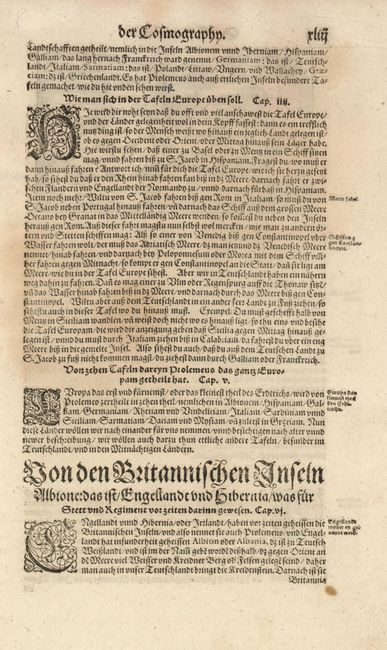 der Cosmography. xliij
Landtschafften getheilt/nemlich in die Inseln Albionem vnnd Iberniam/Hispaniam/
Galliam/das lang hernach Franckreich ward genennt/Germaniam: das ist/Teutsch-
landt/Italiam/Sarmatiam: das ist/Polandt/Littaw/Vngern/vnd Wallachey/Græ-
ciam: dz ist/Griechenlandt. Es hat Ptolemeus auch auß etlichen Inseln besundere Ta-
feln gemachet/wie du hie vnden sehen wirst.
Wie man sich in der Tafeln Europe üben soll. Cap. iiij.
HIe wird dir noht seyn daß du offt vnd viel anschawest die Tafel Europe
vnd der Länder Gelegenheit wol in dein Kopff fassest: dann es ein trefflich
nutz ding ist/so der Mensch weißt wo hinauß ein jeglich Landt gelegen ist/
ob es gegen Occident oder Orient/oder Mittag hinauß sein Läger habe.
Hie merck fleissig/daß einer zu Basel oder zu Metz in ein Schiff sitzen
mag/vnnd fahren biß zu S. Jacob in Hispaniam. Fragest du/wo muß er
dann hinauß fahren? Antwort ich/nim für dich die Tafel Europe/wie ich sie herzu gesetzt
hab/so sihest du daß er den Rhein hinab fahren muß biß in das Meere/darnach fahrt er zwi-
schen Flandern vnd Engellandt der Normandy zu/vnnd darnach fürbaß in Hispaniam.
Item noch mehr: Wiltu von S. Jacob fahren biß gen Rom in Italiam/so must du von
S. Jacob neben Portugal hinauß fahren/vnnd darnach das Schiff auß dem grossen Meere
Oceano bey Granat in das Mittelländig Meere wenden/so
hinauß gen Rom. Auß dieser fahrt magstu nun selbst wol mercken/wie man zu andern or-
ten vnd Stetten schiffen mag: Als so einer von Venedig biß gen Constantinopel vber
Wasser fahren wolt/der muß das Adriatisch Meere/dz man jetzund dz Venedisch Meere
nennet/hinab fahren/vnd darnach vmb Peloponnesum oder Morea mit dem Schiff vm-
her fahren gegen Mitnacht/so kompt er gen Constantinopel an die Statt/dañ sie ligt am
Meere/wie du in der Tafel Europe sihest. Aber wir in Teutschlandt haben ein nähern
weg dahin zu fahren. Dañ es mag einer zu Vlm oder Regenspurg auff die Thonaw sitzen/
vnd das Wasser hinab fahren biß in dz Meere/vnd darnach durch das Meere biß gen Con-
stantinopel. Wiltu aber auß dem Teutschlandt in ein ander fere Landt zu Fuß ziehen/so
sihestu auch in dieser Tafel wo du hinauß must. Exempel: Du must geschefft halb von
Mentz in Siciliam wandlen/vñ weist doch nicht wo es hinauß ligt/so thu eins vnd besihe
die Tafel Europam/die wird dir anzeigung geben daß Sicilia gegen Mittag hinauß ge-
legen ist/vnnd du must durch Italiam ziehen biß in Calabriam/da fahrest du vber ein eng
Meere biß in die gemelte Insel. Also sihest du auch/daß du auß dem Teutschen Landt zu
S. Jacob zu fuß nicht kommen magst/du ziehest dann durch Galliam oder Franckreich.
Von zehen Tafeln dareyn Ptolemeus das gantz Euro-
pam getheilt hat. Cap. v.
EVropa das erst vnd fürnemst/oder das kleinest theil des Erdtrichs/wird von
Ptolemeo zertheilt in zehen theil/nemlich in Albionem/Hispaniam/Gal-
liam/Germaniam/Rhetiam vnd Vindeliciam/Italiam/Sardiniam vnnd
Siciliam/Sarmatiam/Daciam vnd Mysiam/vnd zuletst in Grætiam. Nun
diese Länder wöllen wir nach einander für vns nemmen/vnd besichtigen nach alter vnnd
newer beschreibung/wir wöllen auch darzu thun etliche andere Tafeln/besunder im
Teutschlandt/vnd in den Mitnächtigen Ländern.
Von den Britannischen Inseln
Albione: das ist/Engellandt vnd Hibernia/was für
Stett vnd Regiment vor zeiten darinn gewesen. Cap. vj.
ENgellandt vnnd Hibernia/oder Irrlandt/haben vor zeiten geheissen die
Britannischen Inseln/vnd also nennet sie auch Ptolemeus/vnd Engel-
landt hat insunderheit geheissen Albion oder Albania/dz ist zu Teutsch
Weißlandt/vnd ist im der Nam gebt worden deßhalb/dz gegen Orient an
dē Meere viel Weisser vnd Kreidner Berg oder Felsen gelegē seind/daher
man auch in vnser Teutschlandt bringt die Kreidenstein. Darnach ist sie
Britannia